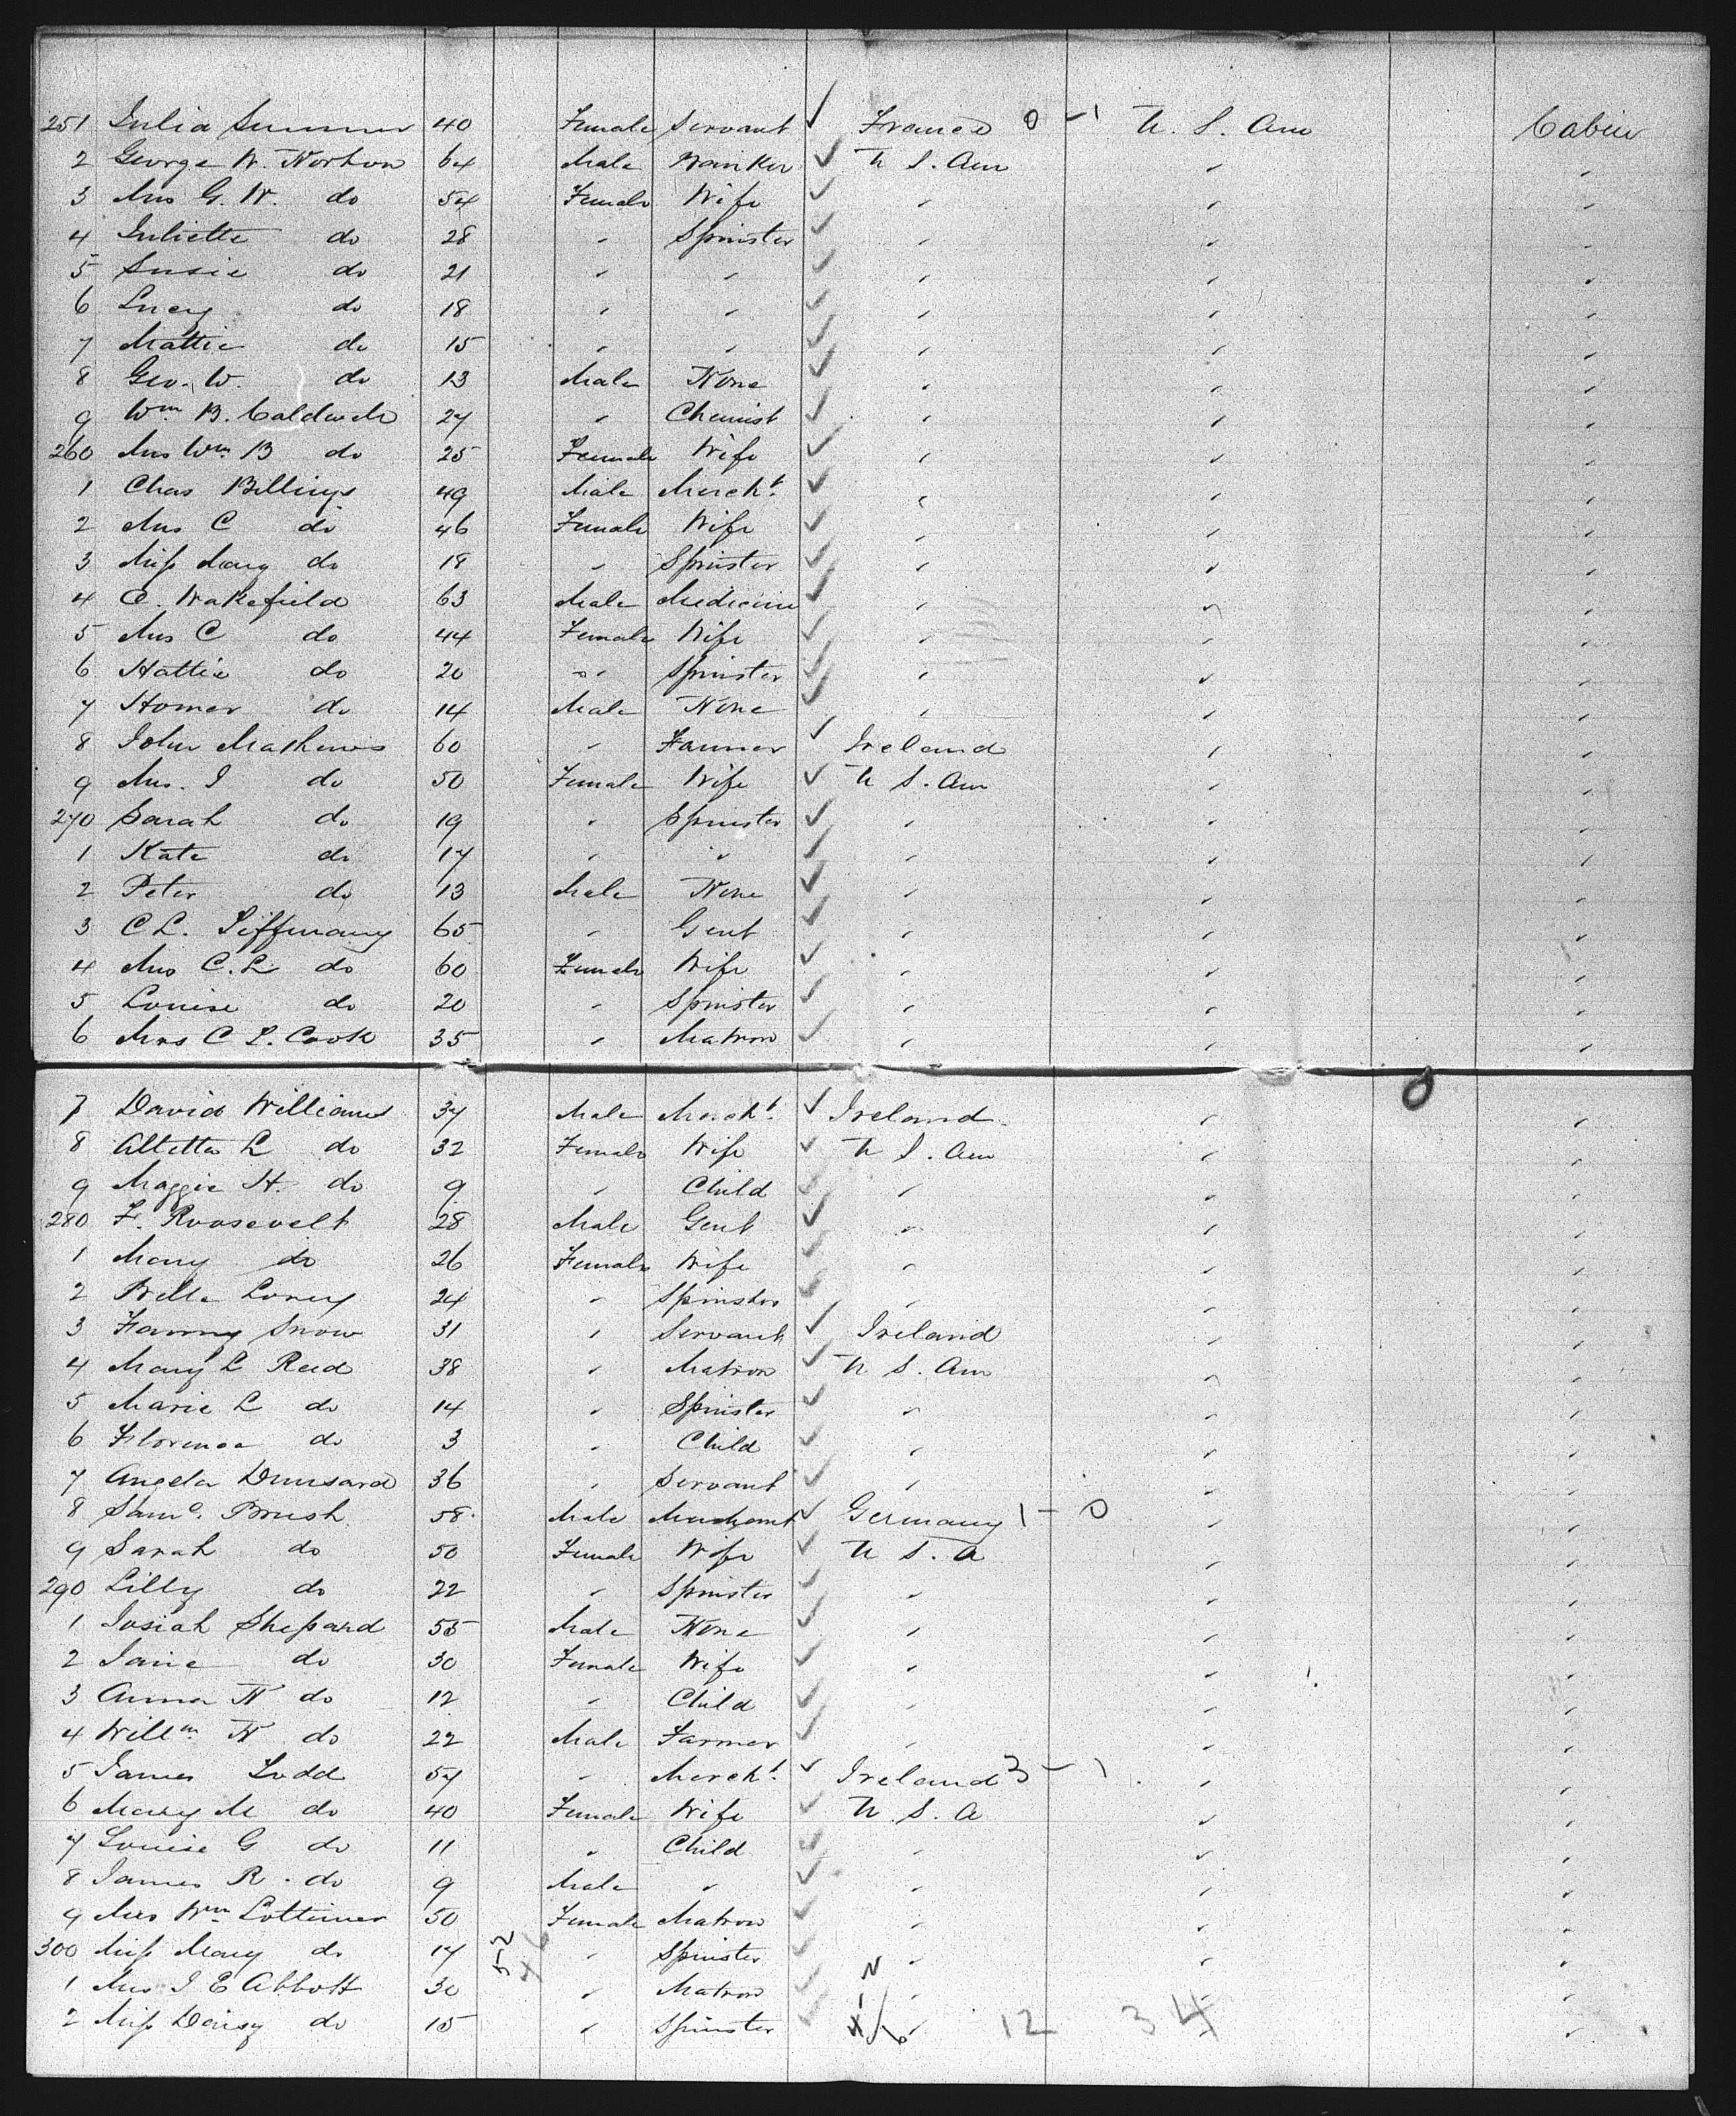 251 Julia Sumner 40 Female Servant ✓ France 0 - 1 U. S. Am Cabin
2 George W. Norton 64 Male Banker ✓ U S. Am " "
3 Mrs G. W. do 54 Female Wife ✓ " " "
4 Juliette do 28 " Spinster ✓ " " "
5 Susie do 21 " " ✓ " " "
6 Lucy do 18 " " ✓ " " "
7 Mattie do 15 " " ✓ " " "
8 Geo. W. do 13 Male None ✓ " " "
9 Wm. B. Caldwell 27 " Chemist ✓ " " "
260 Mrs Wm. B do 25 Female Wife ✓ " " "
1 Chas Billings 49 Male Mercht. ✓ " " "
2 Mrs C do 46 Female Wife ✓ " " "
3 Miss Mary do 18 " Spinster ✓ " " "
4 C. Wakefield 63 Male Medicine ✓ " " "
5 Mrs C do 44 Female Wife ✓ " " "
6 Hattie do 20 " Spinster ✓ " " "
7 Homer do 14 Male None ✓ " " "
8 John Mathews 60 " Farmer ✓ Ireland " "
9 Mrs. J do 50 Female Wife ✓ U S. Am " "
270 Sarah do 19 " Spinster ✓ " " "
1 Kate do 17 " " ✓ " " "
2 Peter do 13 Male None ✓ " " "
3 C L. 65 " Gent ✓ " " "
4 Mrs C. L do 60 Female Wife ✓ " " "
5 Louise do 20 " Spinster ✓ " " "
6 Mrs C L. Cook 35 " Matron ✓ " " "
7 David Williams 37 Male Mercht. ✓ Ireland " "
8 Altetta L do 32 Female Wife ✓ U S. Am " "
9 Maggie H. do 9 " Child ✓ " " "
280 F. Roosevelt 28 Male Gent ✓ " " "
1 Mary do 26 Female Wife ✓ " " "
2 Belle 24 " Spinster ✓ " " "
3 Fanny Snow 31 " Servant ✓ Ireland " "
4 Mary L Reed 38 " Matron ✓ U S. Am " "
5 Marie L do 14 " Spinster ✓ " " "
6 Florence do 3 " Child ✓ " " "
7 Angela Dunsard 36 " Servant ✓ " " "
8 Saml. Brush 58 Male Merchant ✓ Germany 1 - 0 " "
9 Sarah do 50 Female Wife ✓ U S. A " "
290 Lilly do 22 " Spinster ✓ " " "
1 Josiah Shepard 55 Male None ✓ " " "
2 Janie do 30 Female Wife ✓ " " "
3 Anna W do 12 " Child ✓ " " "
4 Willm. W do 22 Male Farmer ✓ " " "
5 James Todd 57 " Mercht. ✓ Ireland 3 - 1 " "
6 Mary M do 40 Female Wife ✓ U. S. A " "
7 Louise G do 11 " Child ✓ " " "
8 James R. do 9 Male " ✓ " " "
9 Mrs Wm. Lottimer 50 Female Matron ✓ " " "
300 Miss Mary do 17 52 46 " Spinster ✓ " " "
1 Mrs J E Abbott 30 " Matron ✓ " " "
2 Miss Daisy do 15 " Spinster ✓ " 12 34 " "